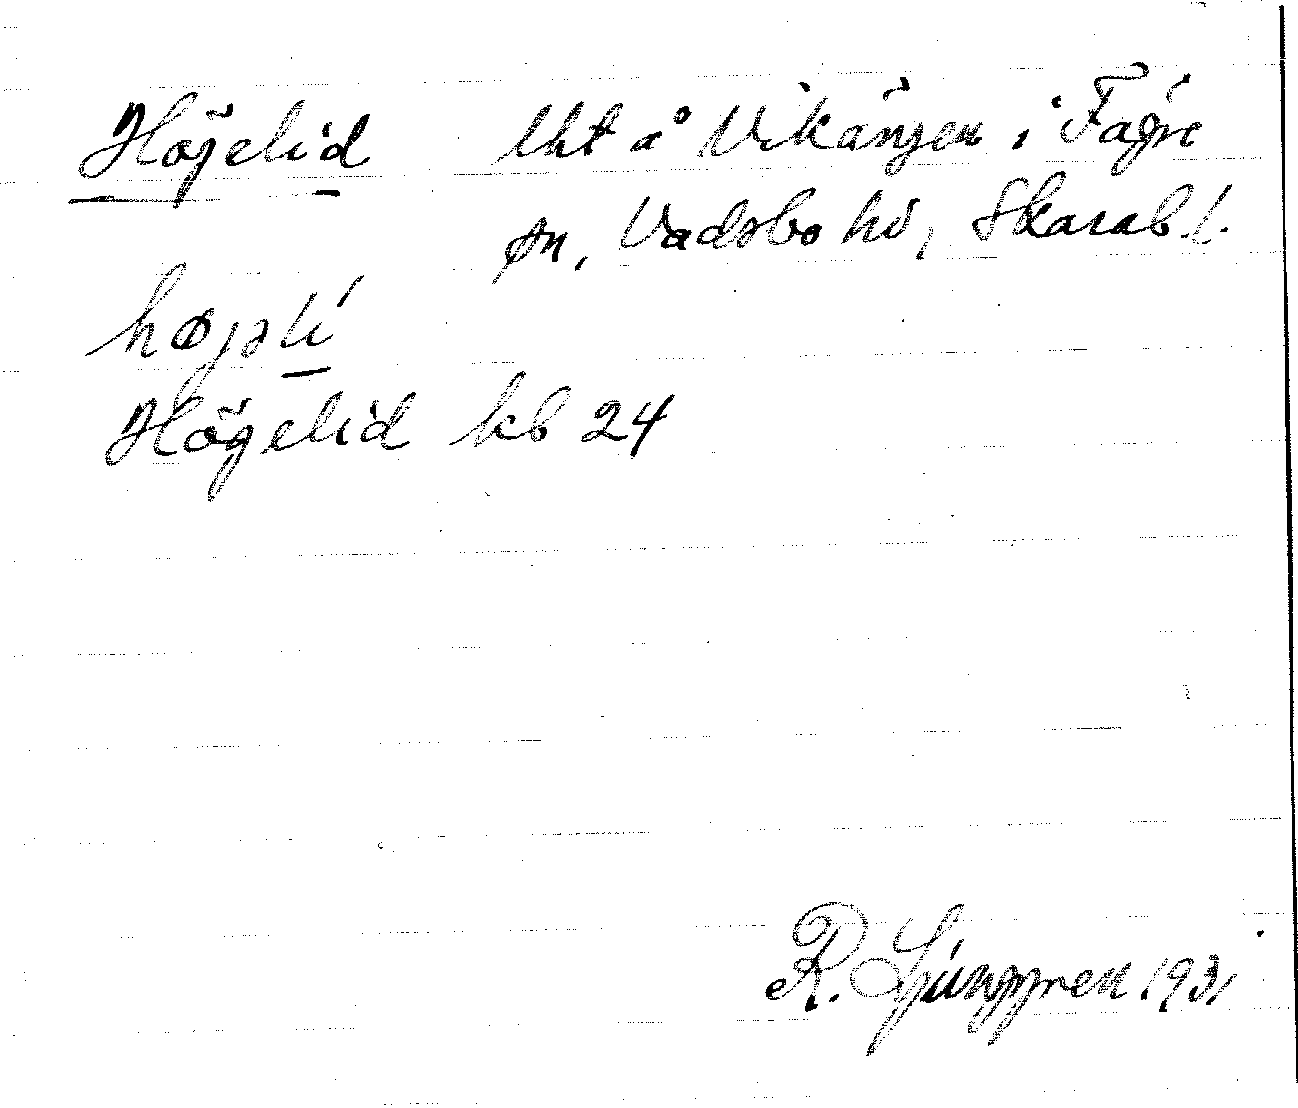 Högelid lht å Vikängen i Fägre
sn, Vadsbo hd, Skarab. l.
højəli
Högelid kb 24
R. Ljunggren 1931